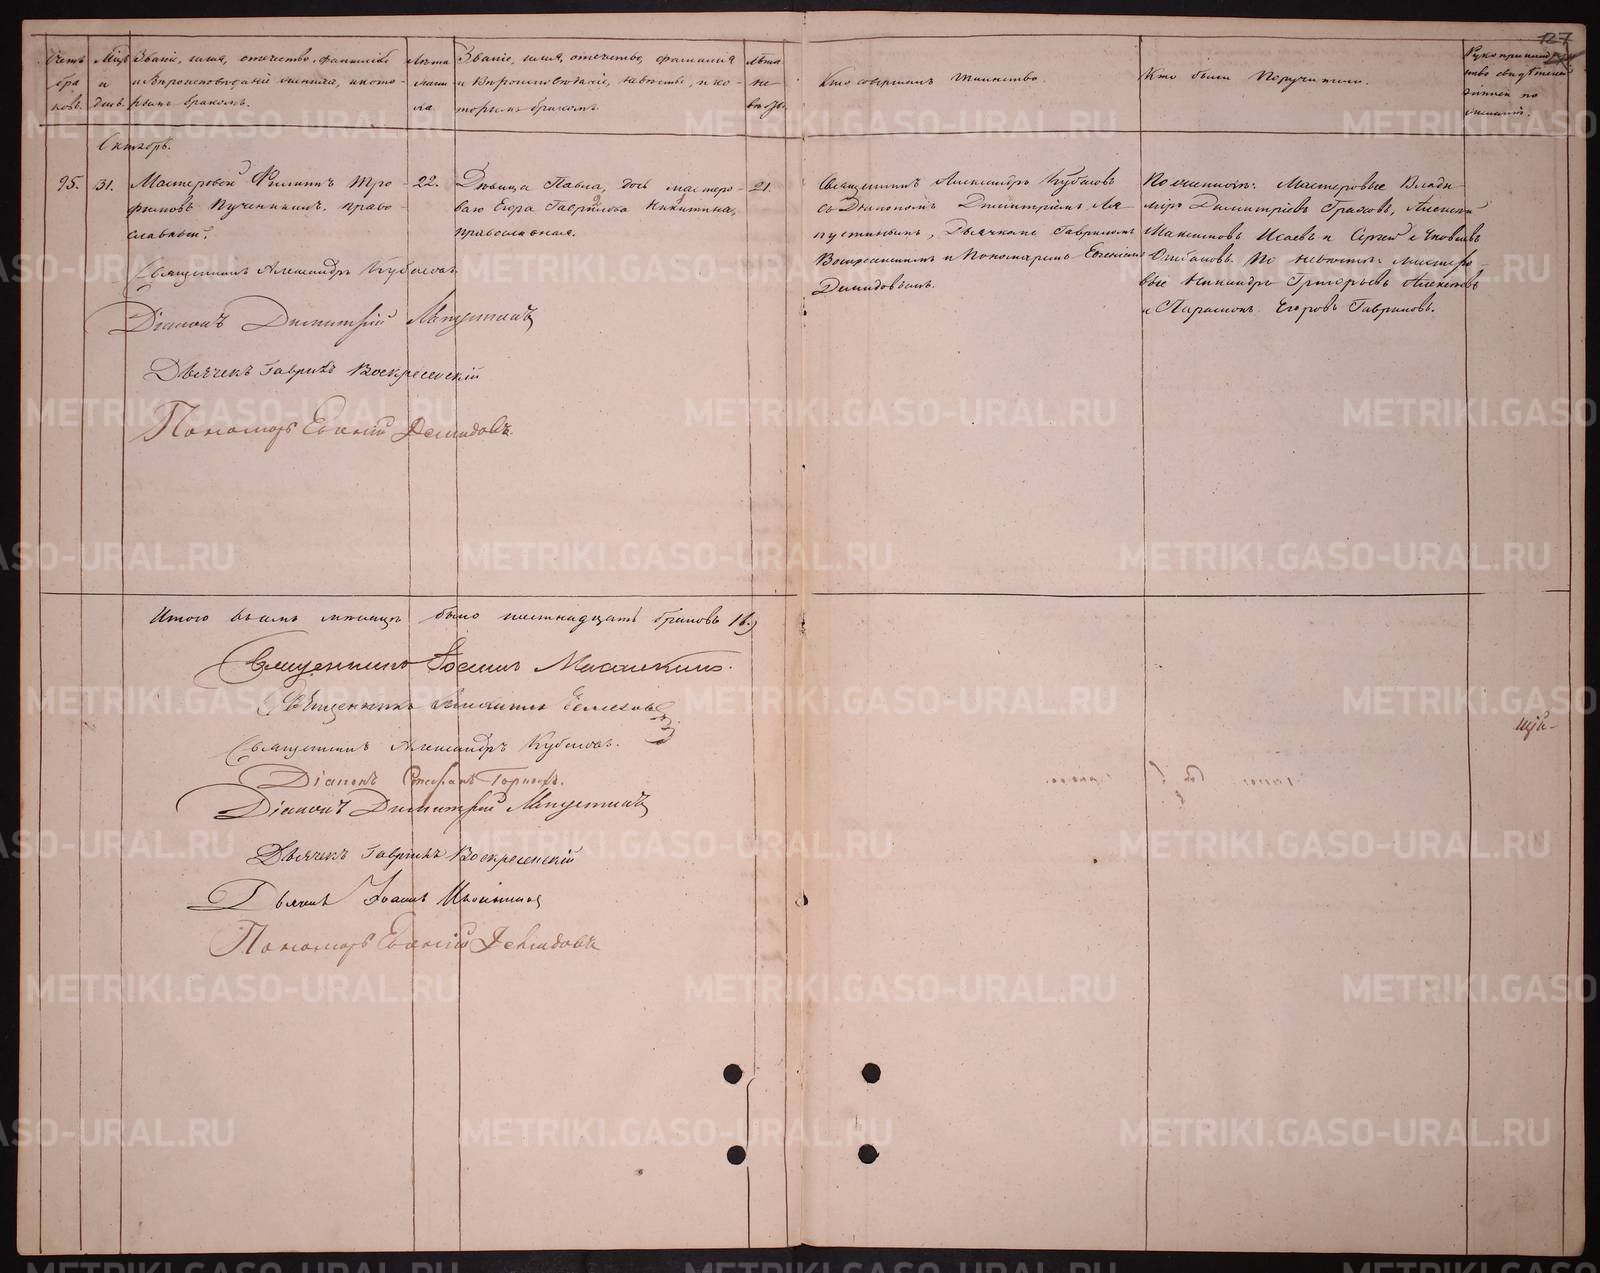 127
Счетъ браковъ.
Мѣц. и день.
Званіе, имя, отечество, фамилія
и вѣроисповѣданіе жениха, и кото-
рымъ бракомъ.
Лѣта жени ха
Званіе, имя, отечество, фамилія
и вѣроисповѣданіе, невѣсты, и ко-
торымъ бракомъ.
Лѣта не вѣсты.
Кто совершалъ таинство.
Кто были поручители.
Рукоприкладство свидѣтелей записи по желанію.
Октябрь.
95. 31. Мастеровой Филиппъ Тро-
фимовъ Пученкинъ. право-
славный.
22.
Дѣвица Павла, дочь мастеро-
ваго Егора Гаврилова Никитина,
православная.
21.
Священникъ Александръ Кубасовъ
съ Діакономъ Димитріемъ Ла-
пустинымъ, Дьячкомъ Гавріиломъ
Воскресенскимъ и Пономаремъ Евгеніемъ
Демидовымъ.
По женихѣ: Мастеровые Влади-
міръ Димитріевъ Алексѣй
Максимовъ Исаевъ и Сергѣй Яковлевъ
По невѣстѣ: мастеро-
вые Никандръ Григорьевъ Алексѣевъ
и Парамонъ Егоровъ Гавриловъ.
Священникъ Александръ Кубасовъ.
Діаконъ Димитрій Лапустинъ
Дьячекъ Гавріилъ Воскресенскій
Пономарь Евгеній Демидовъ.
Итого въ семъ мѣсяцѣ было шестнадцать браковъ 16)
Священникъ Іоаннъ
Священникъ
Священникъ Александръ Кубасовъ.
Діаконъ Стефанъ
Діаконъ Димитрій Лапустинъ
Дьячекъ Гавріилъ Воскресенскій
Дьячекъ Іоаннъ
Пономарь Евгеній Демидовъ
METRIKI.GASO-URAL.RU